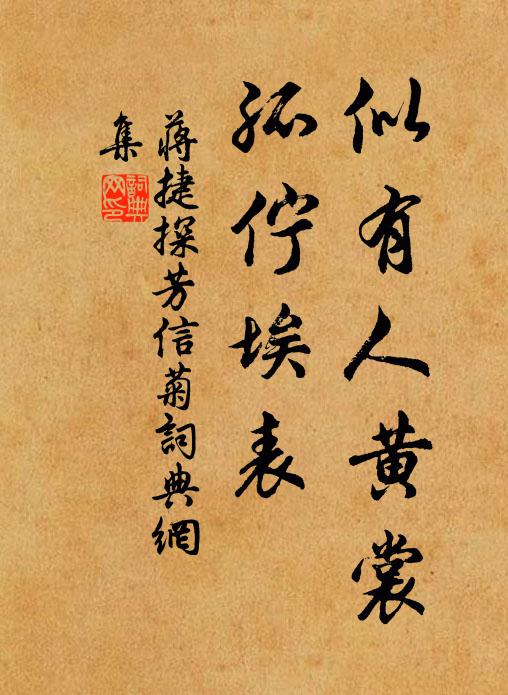 似有人黄裳
孤伫埃表
蔣捷探芳信菊詞典網
集
詞典
网印